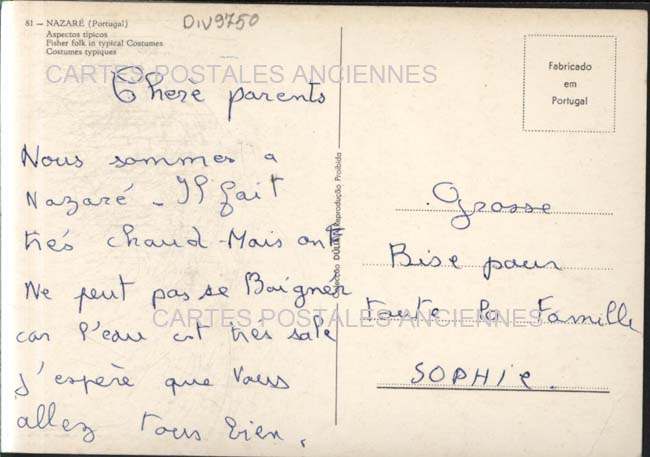 81 — NAZARÉ (Portugal)
Aspectos típicos
Fisher folk in typical Costumes
Costumes typiques
DIV9750
CARTES POSTALES ANCIENNES
Chère parents
Nous sommes a
Nazaré - Il fait
trés chaud - Mais ont
Ne peut pas se Baigner
car l'eau est tres sale
j'espère que vous
allez tous bien.
Colecção DÚLIA Reprodução Proibida
Fabricado
em
Portugal
Grosse
Bise pour
toute la famille
SOPHIE.
CARTES POSTALES ANCIENNES